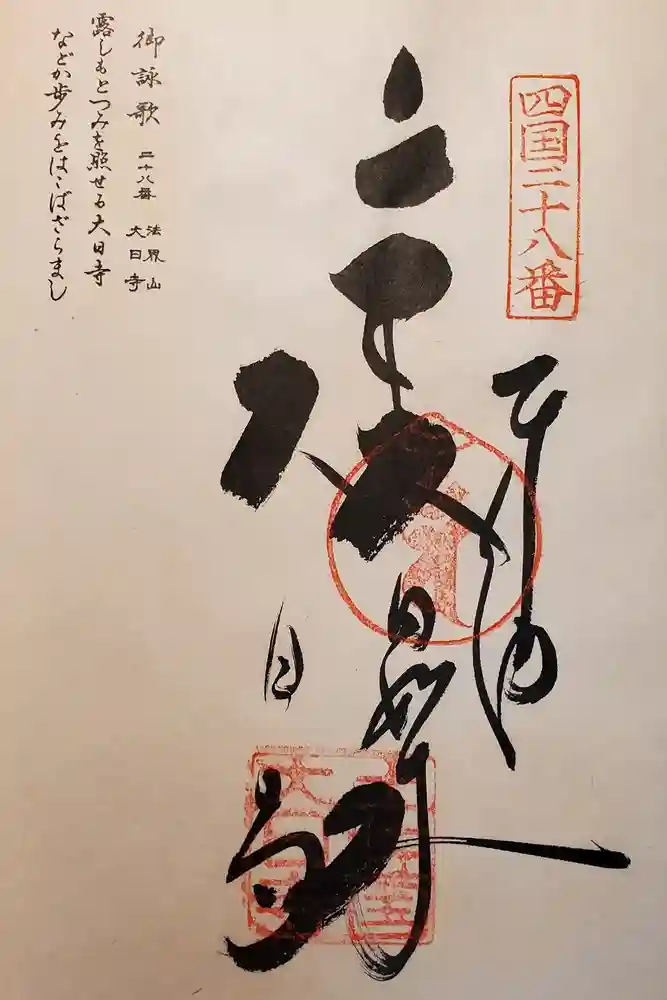 四国二十八番
奉納
大日如来
大日寺
御詠歌 二十八番 法界山 大日寺
露しもとつみを照せる大日寺
などか歩みをはこばざらまし